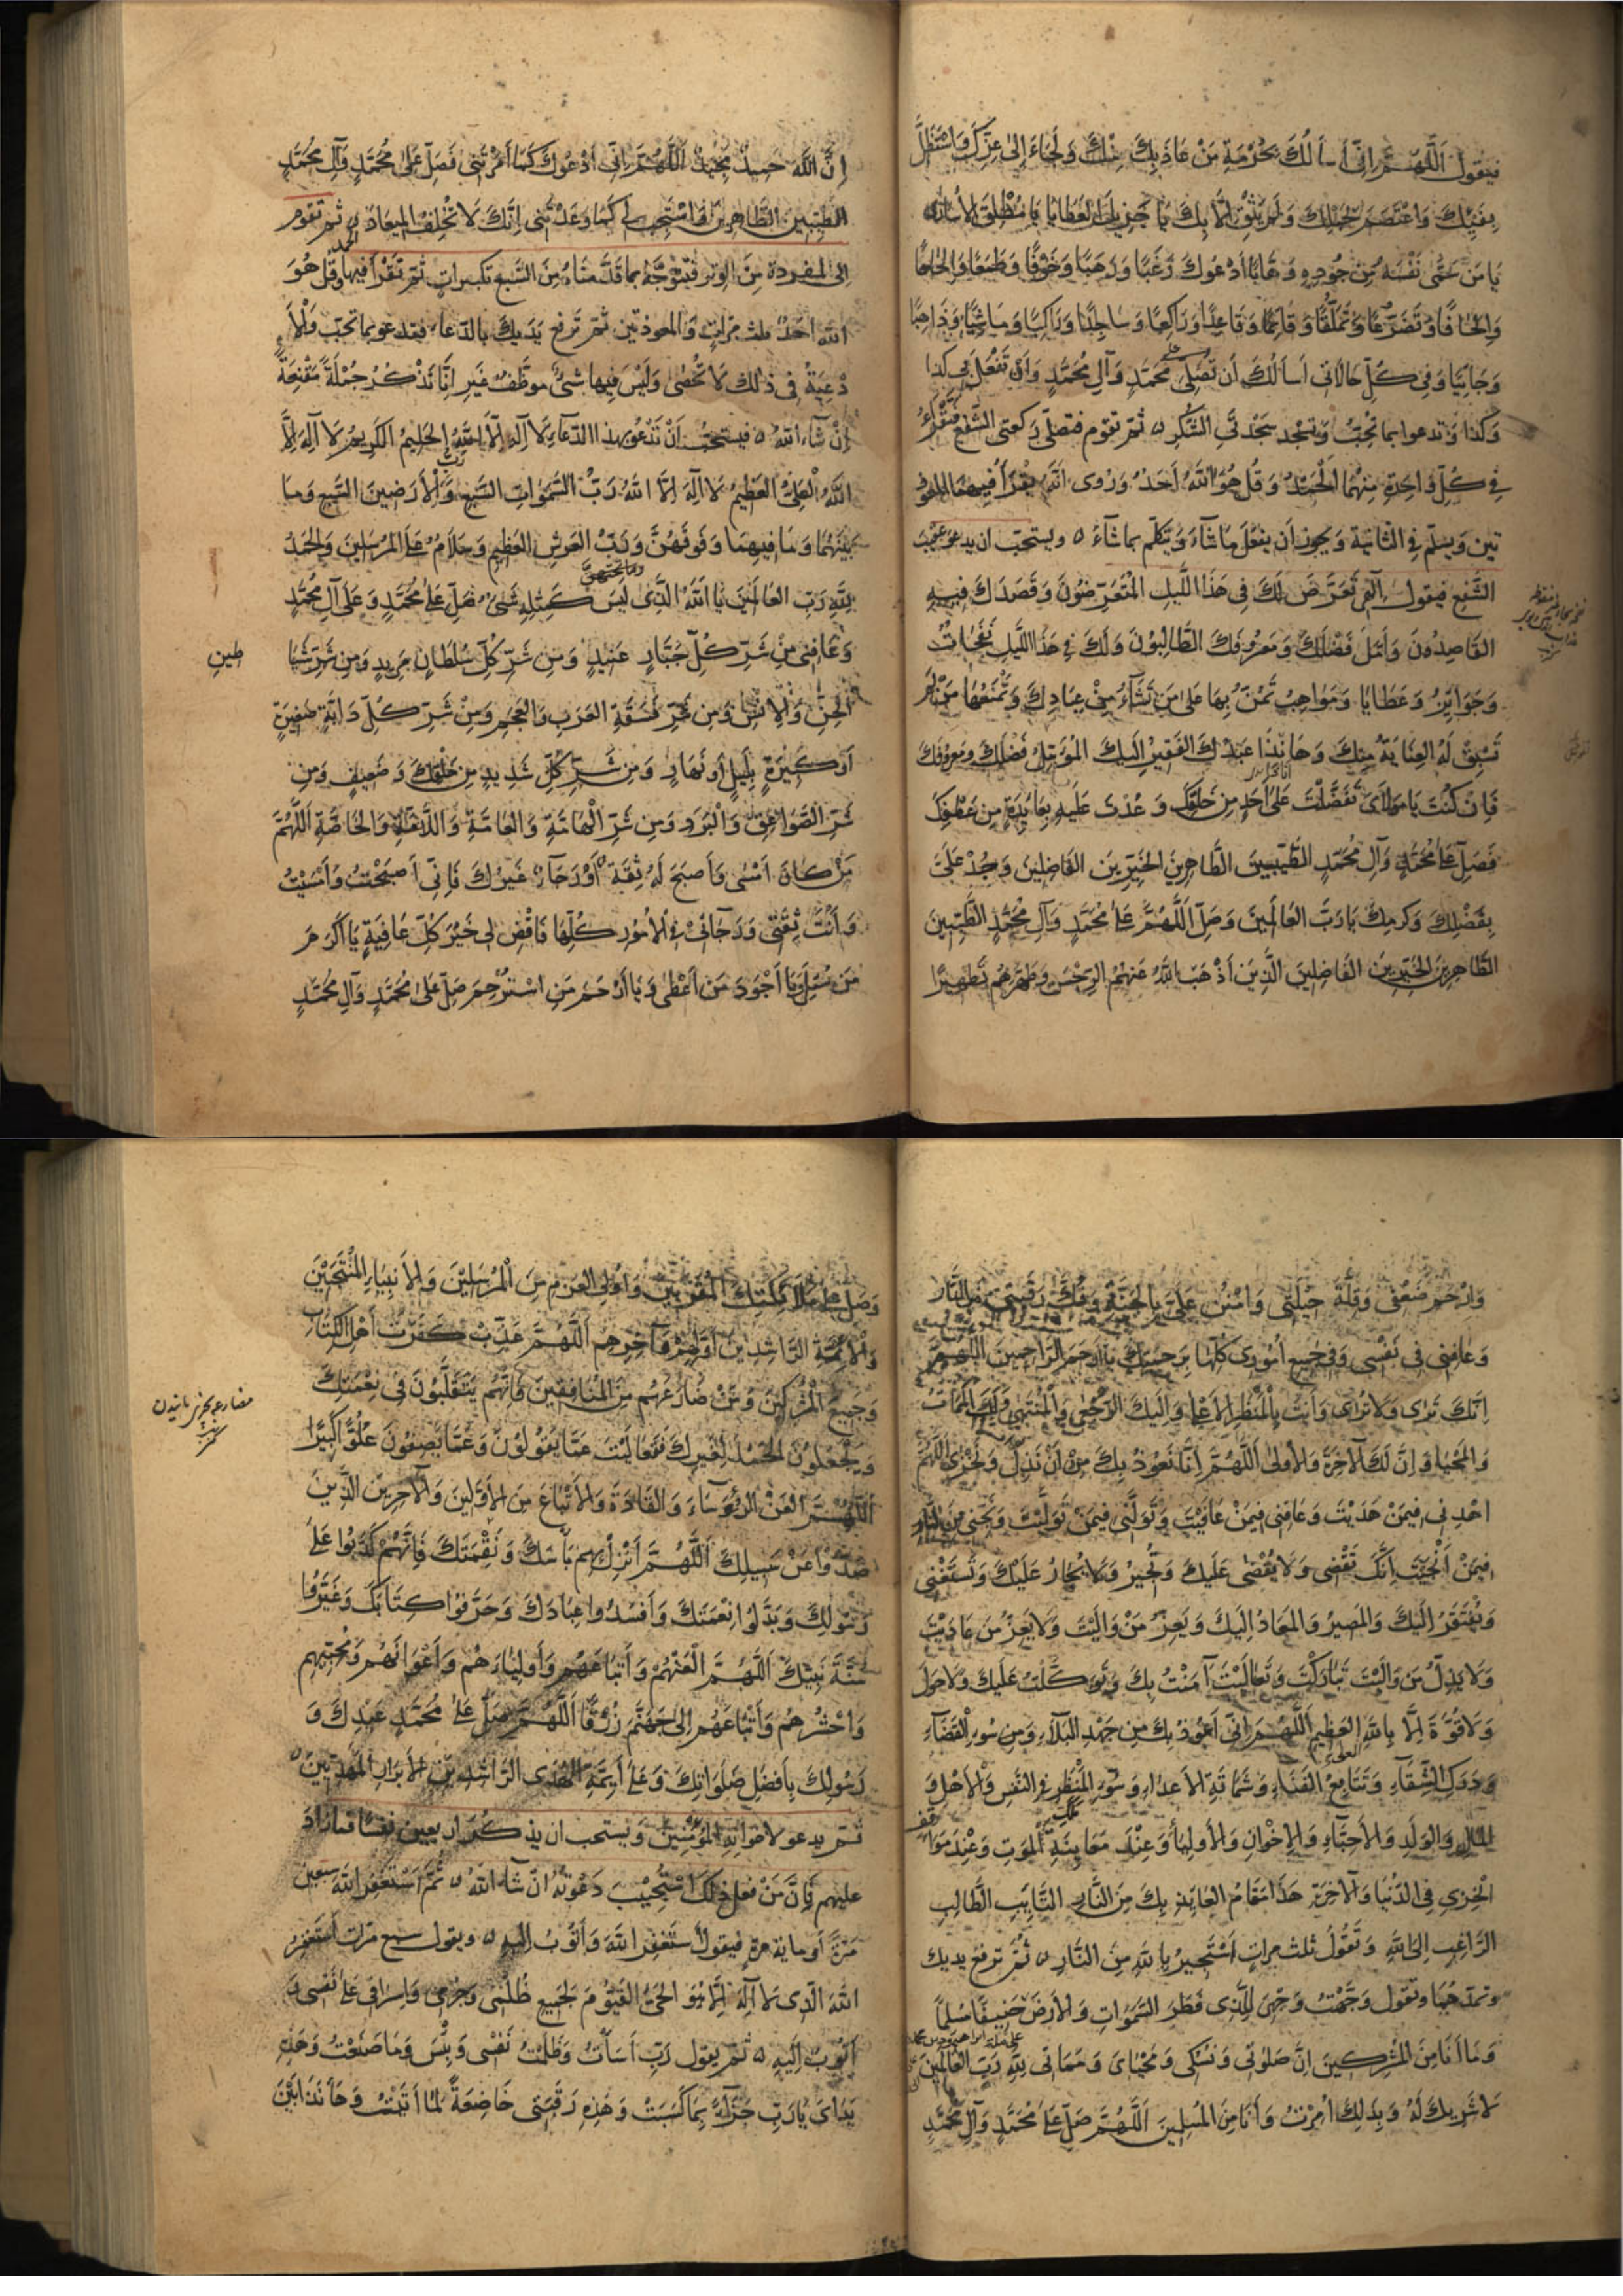 فيقول اَللّٰهُمَّ اِنّى أسألُكَ بِحُرْمَةِ مَنْ عَاذَ بِكَ مِنْكَ وَلَجَاءَ اِلىٰ عِزِّكَ وَاسْتَظَلَّ
بِفَيْئِكَ وَاعْتَصَمَ بِحَبْلِكَ وَلَمْ يَثِقْ اِلَّا بِكَ يَا جَزِيلَ الْعَطَايَا يَا مُطْلِقَ الْأُسَارَى
يَا مَنْ سَمَّى نَفْسَهُ مِنْ جُودِهِ وَهَّابًا أَدْعُوكَ رَغَبًا وَرَهَبًا وَخَوْفًا وَطَمَعًا وَاِلْحَاحًا
وَاِلْحَافًا وَتَضَرُّعًا وَتَمَلُّقًا وَقَائِمًا وَقَاعِدًا وَرَاكِعًا وَسَاجِدًا وَرَاكِبًا وَمَاشِيًا وَذَاهِبًا
وَجَائِيًا وَفِى كُلِّ حَالَاتِى أَسأَلُكَ أَن تُصَلِّىَ عَلَى مُحَمَّدٍ وَآلِ مُحَمَّدٍ وَأَنْ تَفْعَلَ بِى كَذا
وَكَذا وَتدعوا بما تُحِبّ وَتَسْجُد سَجْدَتَىِ الشُّكْرِ ۵ ثُمّ تقوم فتصلّى ركعتى الشَّفع تَقْرَءُ
فِى كُلِّ وَاحِدَةٍ مِنْهُمَا الْحَمْدُ وَقُل هُوَ اللّٰهُ أَحَدٌ وَرُوِى اَنَّهُ يَقْرَأُ فِيهِمَا المعوّذ
تين وَيسلّم فِى الثّانِيَةِ وَيجوز أَن يفعَلَ مَا شَاءَ وَيَتكلّم بما شَآءَ ۵ ويستحبّ ان يدعو عقيب
الشَّفع فيقول اِلٰهِى تَعَرَّضَ لَكَ فِى هَذَا اللَّيلِ الْمُتَعَرِّضُونَ وَقَصَدَكَ فِيهِ
القَاصِدُونَ وَأَمَّلَ فَضْلَكَ وَمَعْرُوفَكَ الطَّالِبُونَ وَلَكَ فِى هَذَا اللَّيلِ نَفَحَاتٌ
وَجَوَائِزُ وَعَطَايَا وَمَوَاهِبُ تَمُنُّ بِهَا عَلىٰ مَن تَشَآءُ مِنْ عِبَادِكَ وَتَمْنَعُهَا مَنْ لَمْ
تَسْبِقْ لَهُ العِنَايَةُ مِنكَ وَهَا اَنَذَا عَبْدُكَ الْفَقِيرُ اِلَيكَ المُؤَمِّلُ فَضْلَكَ وَمَعرُوفَكَ
فَاِن كُنْتَ يَا مَوْلَاىَ تَفَضَّلْتَ عَلىٰ أَحَدٍ مِن خَلْقِكَ وَعُدْتَ عَلَيهِ بِعَائِدَةٍ مِن عَطْفِكَ
فَصَلِّ عَلىٰ مُحَمَّدٍ وَآلِ مُحَمَّدٍ الطَّيِّبِينَ الطَّاهِرِينَ الخَيِّرِينَ الفَاضِلِينَ وَجُدْ عَلَىَّ
بِفَضْلِكَ وَكَرمِكَ يَا رَبَّ العَالَمِينَ وَصَلِّ اللَّهُمَّ عَلىٰ مُحَمَّدٍ وَآلِ مُحَمَّدٍ الطَّيِّبِينَ
الطَّاهِرِينَ الخَيِّرِينَ الفَاضِلِينَ الَّذِينَ أَذْهَبَ اللّٰهُ عَنهُمُ الرِّجْسَ وَطَهَّرَهُم تَطهِيرًا
اِنَّ اللَّهَ حَمِيدٌ مَجِيدٌ اَللّٰهُمَّ اِنِّى أَدْعُوكَ كَمَا أَمَرْتَنِى فَصَلِّ عَلىٰ مُحَمَّدٍ وَآلِ مُحَمَّدٍ
الطَّيِّبِينَ الطَّاهِرِينَ وَاسْتَجِبْ لِى كَمَا وَعَدْتَنِى اِنَّكَ لَا تُخْلِفُ الْمِيعَادَ ۵ ثمّ تَقوم
اِلى المفردة مِنَ الوتر فتتوجّه بما قَدَّمنَاهُ مِنَ السَّبع تكبيراتٍ ثمّ تَقْرَأ فيها الحمد وقل هُوَ
اللّٰه اَحَدٌ ثلث مرّاتٍ وَالمعوذتين ثمّ تَرفع يَدَيكَ بالدّعاء فتدعو بما تُحبّ وَالْأَ
دْعِيَةُ فِى ذٰلك لَا تُحْصٰى وَلَيْسَ فِيهَا شىْءٌ موظَّفٌ غَير اِنّا نَذْكُرُ جُمْلَةً مُقْنِعَةً
اِنْ شَآءَ اللّٰهُ ۵ فيستحبّ اَنْ تَدْعُوَ بهذا الدّعاءِ لَا اِلٰهَ اِلَّا اللّٰهُ الحَلِيمُ الكَرِيمُ لَا اِلٰهَ اِلَّا
اللّٰهُ الْعَلِىُّ الْعَظِيمُ لَا اِلٰهَ اِلَّا اللّٰهُ رَبُّ السَّمَوَاتِ السَّبعِ وَرَبُّ الْأَرَضِينَ السَّبعِ وَمَا
بَيْنَهُمَا وَمَا فِيهِمَا وَفَوقَهُنَّ وَمَا تَحْتَهُنَّ وَرَبُّ الْعَرْشِ الْعَظِيمِ وَسَلَامٌ عَلَى المُرْسَلِينَ وَالْحَمْدُ
لِلّٰهِ رَبِّ العَالَمِينَ يَا اَللّٰهُ الَّذِى لَيسَ كَمِثْلِهِ شَىْءٌ صَلِّ عَلىٰ مُحَمَّدٍ وَعَلىٰ آلِ مُحَمَّدٍ
وَعَافِنِى مِنْ شَرِّ كُلِّ جَبَّارٍ عَنِيدٍ وَمِن شَرِّ كُلِّ سُلطَانٍ مَرِيدٍ وَمِن شَرِّ شَيَا
طين
الْجِنِّ وَالْاِنْسِ وَمِن شَرِّ فَسَقَةِ العَرَبِ وَالعَجَمِ وَمِنْ شَرِّ كُلِّ دَابَّةٍ صَغِيرَةٍ
أَوكَبِيرَةٍ بِلَيلٍ أَو نَهَارٍ وَمِن شَرِّ كُلِّ شَدِيدٍ مِن خَلْقِكَ وَضَعِيفٍ وَمِن
شَرِّ الصَّوَاعِقِ وَالْبَرَدِ وَمِن شَرِّ الْهَامَّةِ وَالعَامَّةِ وَاللَّامَّةِ وَالخَاصَّةِ اَللّٰهُمَّ
مَنْ كَانَ اَمْسٰى وَأَصبَحَ لَهُ ثِقَةٌ أَوْ رَجَآءٌ غَيرُكَ فَاِنِّى أَصبَحْتُ وَأَمْسَيْتُ
وَأَنْتَ ثِقَتِى وَرَجَائِى فِى الْأُمُورِ كُلِّهَا فَاقْضِ لِى خَيْرَ كُلِّ عَافِيَةٍ يَا أَكْرَمَ
مَن سُئِلَ وَيَا أَجْوَدَ مَن أَعْطٰى وَيَا أَرْحَمَ مَنِ اسْتُرْحِمَ صَلِّ عَلىٰ مُحَمَّدٍ وَآلِ مُحَمَّدٍ
وَارْحَمْ ضَعْفِى وَقِلَّةَ حِيْلَتِى وَامْنُن عَلَىَّ بِالْجَنَّةِ وَفُكَّ رَقَبَتِى مِنَ النَّارِ
وَعَافِنِى فِى نَفْسِى وَفِى جَمِيعِ أُمُورِى كُلِّهَا بِرَحْمَتِكَ يَا أَرْحَمَ الرَّاحِمِينَ اَللّٰهُمَّ
اِنَّكَ تَرٰى وَلَا تُرَى وَأَنتَ بِالْمَنْظَرِ الْأَعْلىٰ وَاِلَيكَ الرُّجْعٰى وَالْمُنتَهٰى وَلَكَ الْمَمَاتُ
وَالمَحْيَا وَاِنَّ لَكَ الْآخِرَةَ وَالْأُولىٰ اَللّٰهُمَّ اِنَّا نَعُوذُ بِكَ مِنْ أَنْ نَذِلَّ وَنَخْزٰى اَللّٰهُمَّ
اهْدِنِى فِيمَنْ هَدَيْتَ وَعَافِنِى فِيمَنْ عَافَيْتَ وَتَوَلَّنِى فِيمَنْ تَوَلَّيْتَ وَنَجِّنِى مِنَ النَّارِ
فِيمَنْ أَنْجَيْتَ اِنَّكَ تَقْضِى وَلَا يُقْضٰى عَلَيكَ وَتُجِيرُ وَلَا يُجَارُ عَلَيْكَ وَتَسْتَغْنِى
وَيُفْتَقَرُ اِلَيكَ وَالمَصِيرُ وَالمَعَادُ اِلَيكَ وَيَعِزُّ مَنْ وَالَيْتَ وَلَا يَعِزُّ مَن عَادَيْتَ
وَلَا يَذِلُّ مَن وَالَيْتَ تَبَارَكْتَ وَتَعَالَيْتَ آمَنْتُ بِكَ وَتَوَكَّلْتُ عَلَيكَ وَلَا حَولَ
وَلَا قُوَّةَ اِلَّا بِاللّٰهِ العلى العَظِيمِ اَللّٰهُمَّ اِنِّى أَعُوذُ بِكَ مِن جَهْدِ البَلَآءِ وَمِن سُوءِ الْقَضَآءِ
وَدَرَكِ الشَّقَآءِ وَتَتَابُعِ الفَنَاءِ وَشَمَاتَةِ الْأَعدَاءِ وَسُوءِ الْمَنْظَرِ فِى النَّفسِ وَالْأَهْلِ وَ
المَالِ وَالوَلَدِ وَالْأَحِبَّاءِ وَالْاِخْوَانِ وَالْأَولِيَاءِ وَعِنْدَ مُعَايَنَةِ مَلَكِ الْمَوتِ وَعِنْدَ مَوَا
قف
الْخِزْىِ فِى الدُّنْيَا وَالْآخِرَةِ هَذَا مَقَامُ العَائِذِ بِكَ مِنَ النَّارِ التَّائِبِ الطَّالِبِ
الرَّاغِبِ اِلَى اللّٰهِ وَتَقُولُ ثلث مراتٍ أَسْتَجِيرُ بِاللّٰهِ مِنَ النَّارِ ۵ ثُمَّ ترفع يديك
وتمدّهما وتقول وَجَّهْتُ وَجْهِىَ لِلَّذِى فَطَرَ السَّمَوَاتِ وَالْأَرْضَ حَنِيفًا مُسْلِمًا
على ملة ابراهيم ودين محمد
وَمَا اَنَا مِنَ المُشْرِكِينَ اِنَّ صَلوٰتِى وَنُسُكِى وَمَحْيَاىَ وَمَمَاتِى لِلّٰهِ رَبِّ العَالَمِينَ
لَا شَرِيكَ لَهُ وَبِذَلِكَ اُمِرْتُ وَأَنَا مِنَ المُسْلِمِينَ اَللّٰهُمَّ صَلِّ عَلىٰ مُحَمَّدٍ وَآلِ مُحَمَّدٍ
وَصَلِّ عَلىٰ مَلَآئِكَتِكَ الْمُقَرَّبِينَ وَاُولِى العَزمِ مِنَ الْمُرْسَلِيْنَ وَالْأَنبِيَاءِ الْمُنْتَجَبِيْنَ
وَالْأَئِمَّةِ الرَّاشِدِينَ أَوَّلِهِمْ وَآخِرِهِم اَللّٰهُمَّ عَذِّبْ كَفَرَةَ أَهْلِ الكِتَابِ
وَجَمِيعَ الْمُشْرِكِينَ وَمَنْ ضَارَعَهُم مِنَ الْمُنَافِقِينَ فَاِنَّهُم يَتَقَلَّبُونَ فِى نِعْمَتِكَ
وَيَجْعَلُونَ الْحَمْدَ لِغَيرِكَ فَتَعَالَيْتَ عَمَّا يَقُولُونَ وَعَمَّا يَصِفُونَ عُلُوًّا كَبِيرًا
اَللّٰهُمَّ الْعَنِ الرُّؤَسَآءَ وَالقَادَةَ وَالْأَتْبَاعَ مِنَ الْأَوَّلِينَ وَالْآخِرِينَ الَّذِينَ
صَدُّوْا عَنْ سَبِيلِكَ اَللّٰهُمَّ أَنْزِلْ بِهِم بَأسَكَ وَنَقِمَتَكَ فَاِنَّهُمْ كَذَبُوا عَلىٰ
رَسُولِكَ وَبَدَّلُوا نِعْمَتَكَ وَأَفسَدُوا عِبَادَكَ وَحَرَّفُوا كِتَابَكَ وَغَيَّرُوا
سُنَّةَ نَبِيِّكَ اَللّٰهُمَّ الْعَنْهُمْ وَأَتبَاعَهُم وَأَولِيَاءَهُم وَأَعْوَانَهُم وَمُحِبِّيهِم
وَاحْشُرهُم وَأَتْبَاعَهُم اِلىٰ جَهَنَّمَ زُرْقًا اَللّٰهُمَّ صَلِّ عَلىٰ مُحَمَّدٍ عَبْدِكَ وَ
رَسُولِكَ بِأَفضَلِ صَلَوَاتِكَ وَعَلىٰ أَئِمَّةِ الهُدَى الرَّاشِدِينَ الْأَبرَارِ الْمَهْدِيِّينَ ۵
ثمّ يدعو لاخوانِهِ المُؤمِنِينَ وَيستحب ان يذكُرَ اربعين نفسًا فما زاد
عليهم فَاِنَّ مَنْ فعل ذلِكَ اسْتُجِيْبَ دَعْوَتُهُ اِنْ شَآءَ اللّٰهُ ۵ ثُمَّ اسْتَغفِر اللّٰهَ سبعين
مَرّةً أو ماية مرة فيقول أَستَغْفِرُ اللّٰهَ وَأَتُوبُ اِلَيهِ ۵ ويقول سبع مرّات أَستَغفِرُ
اللّٰهَ الَّذِى لَا اِلٰهَ اِلَّا هُوَ الحَىُّ القَيُّومُ لِجَمِيعِ ظُلْمِى وَجُرْمِى وَاِسرَافِى عَلىٰ نَفْسِى وَ
أَتُوبُ اِلَيهِ ۵ ثمّ يقول رَبِّ أَسَأتُ وَظَلَمْتُ نَفْسِى وَبِئْسَ مَا صَنَعْتُ وَهَذِهِ
يَدَاىَ يَا رَبِّ جَزَآءً بِمَا كَسَبَتْ وَهَذِهِ رَقَبَتِى خَاضِعَةً لِمَا أَتَيْتُ وَهَا اَنَذَا بَيْنَ